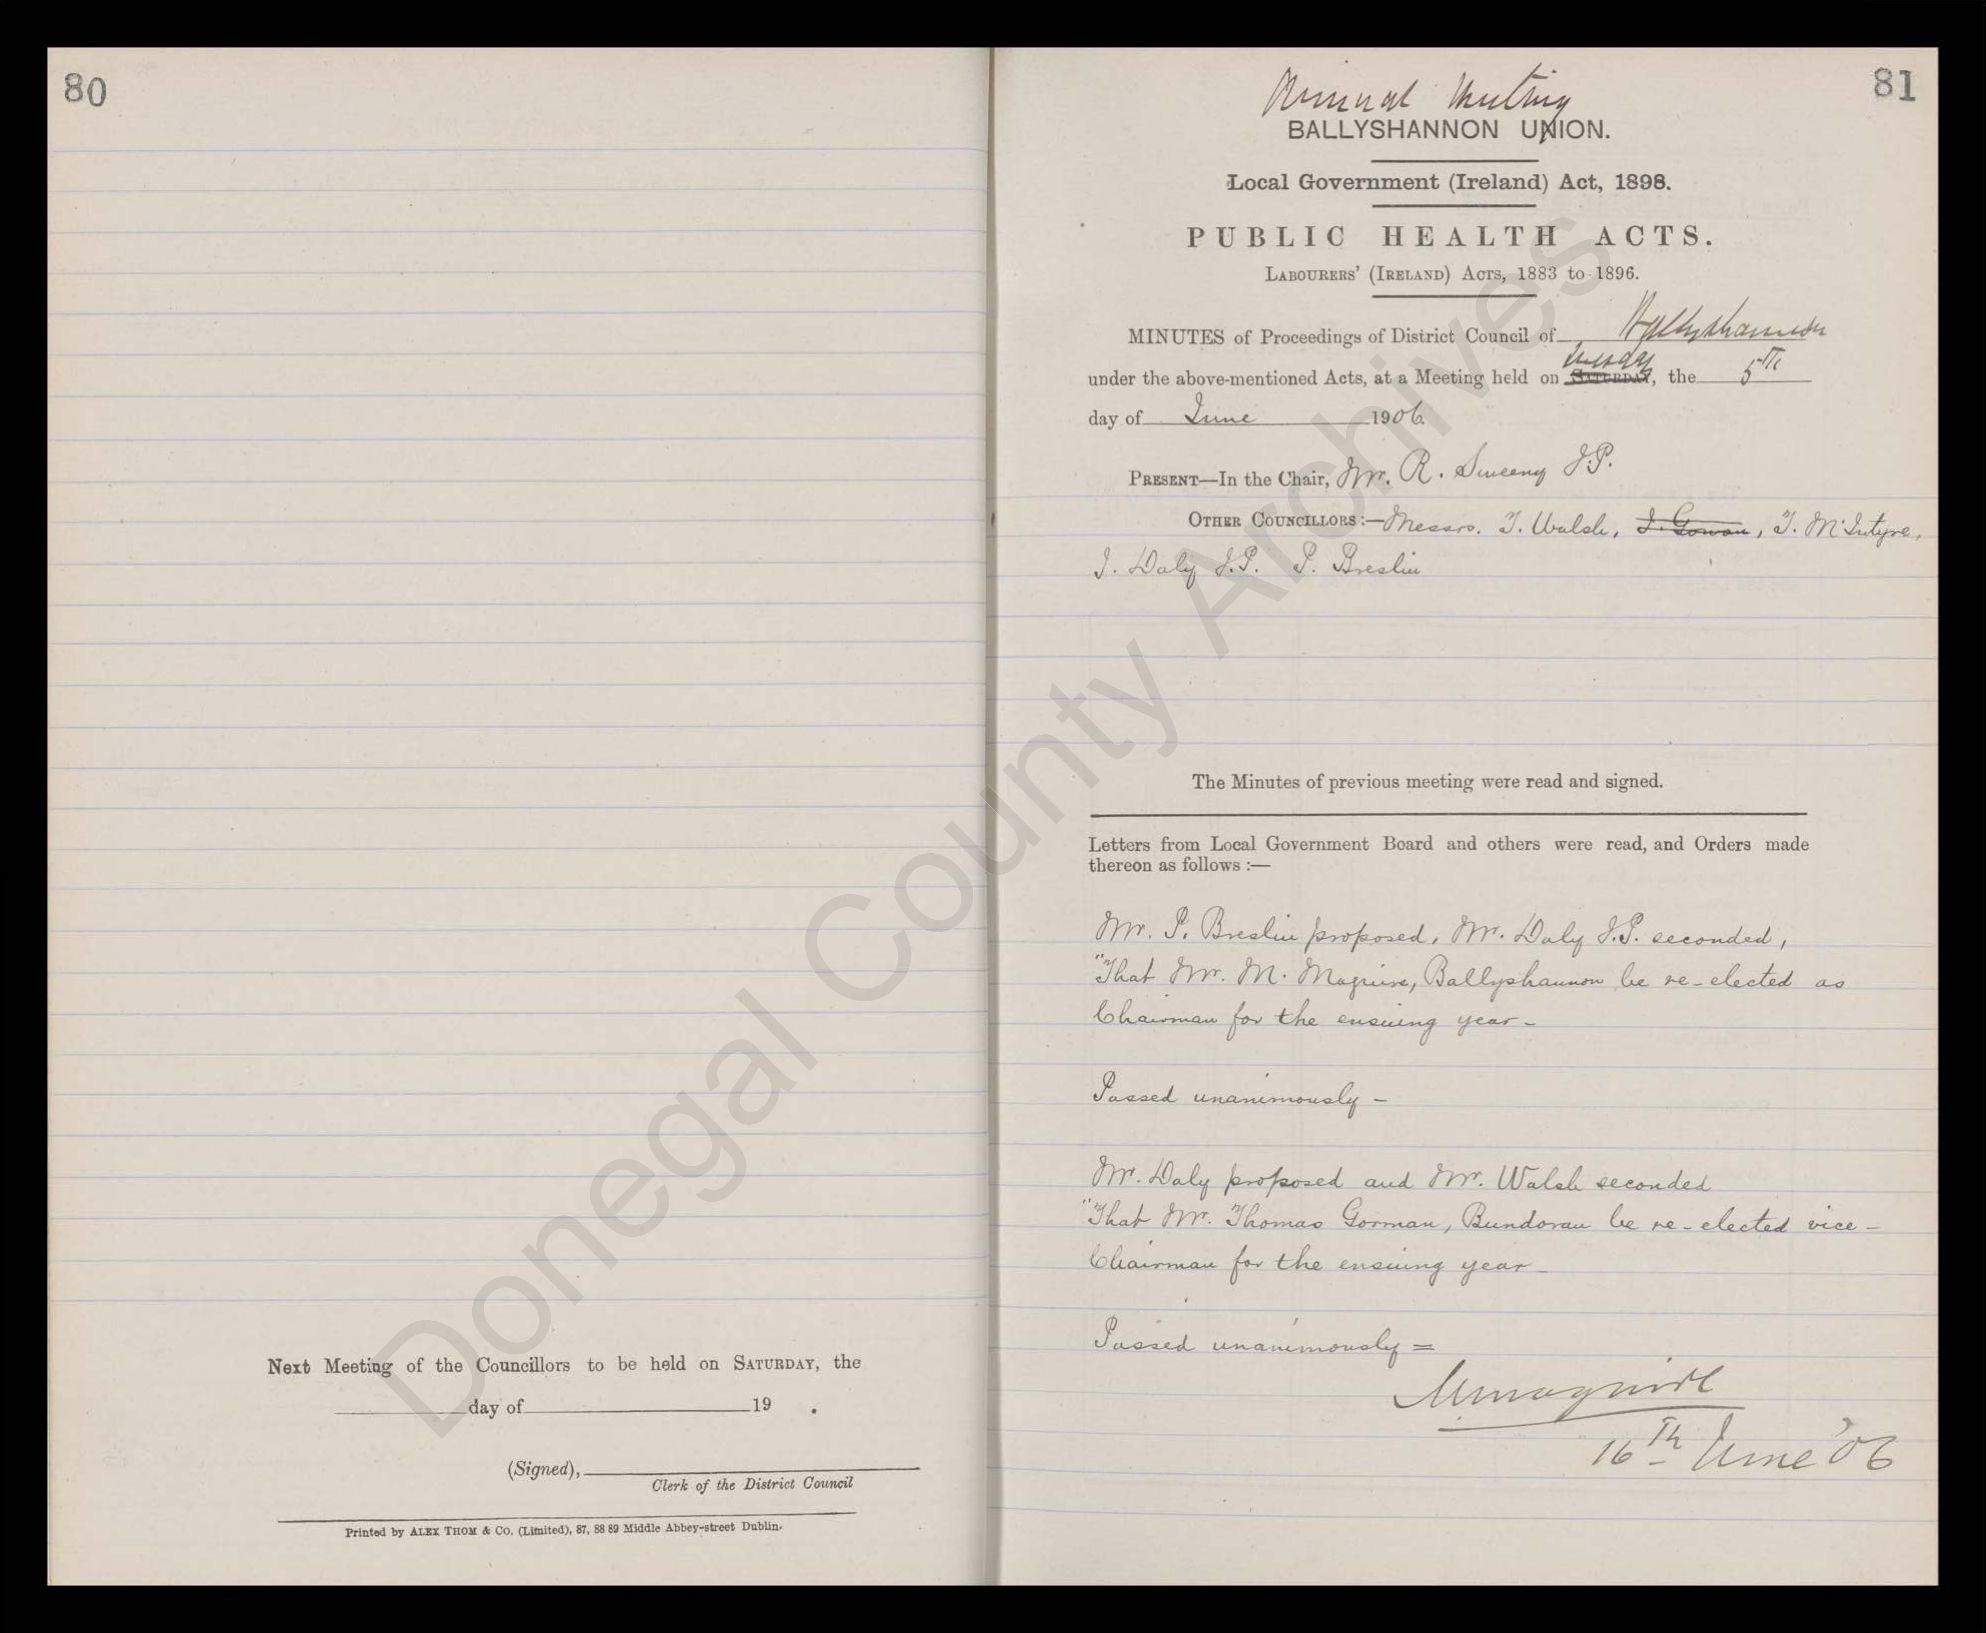 80
Next Meeting of the Councillors to be held on SATURDAY, the
day of 19 .
(Signed),
Clerk of the District Council
Printed by ALEX THOM & CO. (Limited), 87, 88 89 Middle Abbey-street Dublin.
81
Annual Meeting
BALLYSHANNON UNION.
Local Government (Ireland) Act, 1898.
PUBLIC HEALTH ACTS.
LABOURERS' (IRELAND) ACTS, 1883 to 1896.
MINUTES of Proceedings of District Council of Ballyshannon
Tuesday
under the above-mentioned Acts, at a Meeting held on SATURDAY, the 5th
day of June 1906.
PRESENT—In the Chair, Mr. R. Sweeny J.P.
OTHER COUNCILLORS:—Messrs. T. Walsh, J. Gowan, T. McIntyre,
J. Daly J.P. P. Breslin
The Minutes of previous meeting were read and signed.
Letters from Local Government Board and others were read, and Orders made
thereon as follows :—
Mr. P. Breslin proposed, Mr. Daly J.P. seconded,
"That Mr. M. Maguire, Ballyshannon be re-elected as
Chairman for the ensuing year-
Passed unanimously -
Mr. Daly proposed and Mr. Walsh seconded
"That Mr. Thomas Gorman, Bundoran be re-elected vice-
Chairman for the ensuing year-
Passed unanimously =
M Maguire
16th June '06
Donegal County Archives